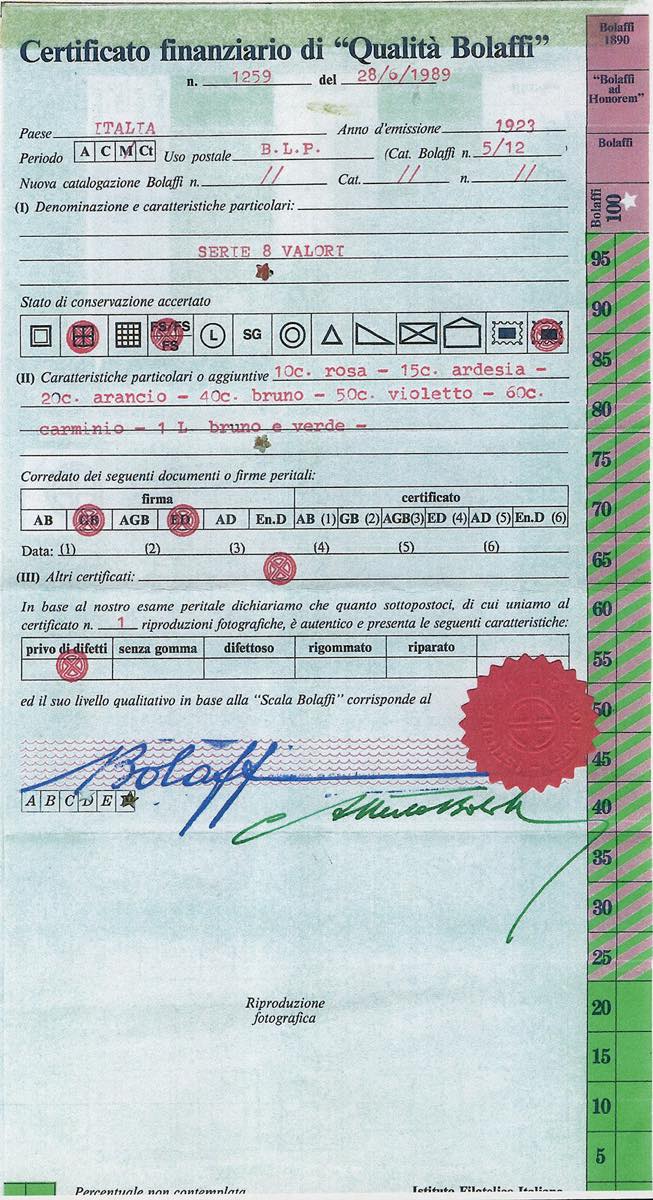 Certificato finanziario di “Qualità Bolaffi”
n. 1259 del 28/6/1989
Paese ITALIA Anno d'emissione 1923
Periodo A C M Ct Uso postale B.L.P. (Cat. Bolaffi n. 5/12 )
Nuova catalogazione Bolaffi n. // Cat. // n. //
(I) Denominazione e caratteristiche particolari:
SERIE 8 VALORI
Stato di conservazione accertato
FS/FS
FS
L
SG
(II) Caratteristiche particolari o aggiuntive 10c. rosa - 15c. ardesia -
20c. arancio - 40c. bruno - 50c. violetto - 60c.
carminio - 1 L bruno e verde -
Corredato dei seguenti documenti o firme peritali:
firma certificato
AB GB AGB ED AD En.D AB (1) GB (2) AGB(3) ED (4) AD (5) En.D (6)
Data: (1) (2) (3) (4) (5) (6)
(III) Altri certificati:
In base al nostro esame peritale dichiariamo che quanto sottopostoci, di cui uniamo al
certificato n. 1 riproduzioni fotografiche, è autentico e presenta le seguenti caratteristiche:
privo di difetti senza gomma difettoso rigommato riparato
ed il suo livello qualitativo in base alla “Scala Bolaffi” corrisponde al
Bolaffi
A B C D E
Riproduzione
fotografica
Percentuale non contemplata
Istituto Filatelico Italiano
Bolaffi
1890
“Bolaffi
ad
Honorem”
Bolaffi
Bolaffi
100
95
90
85
80
75
70
65
60
55
50
45
40
35
30
25
20
15
10
5